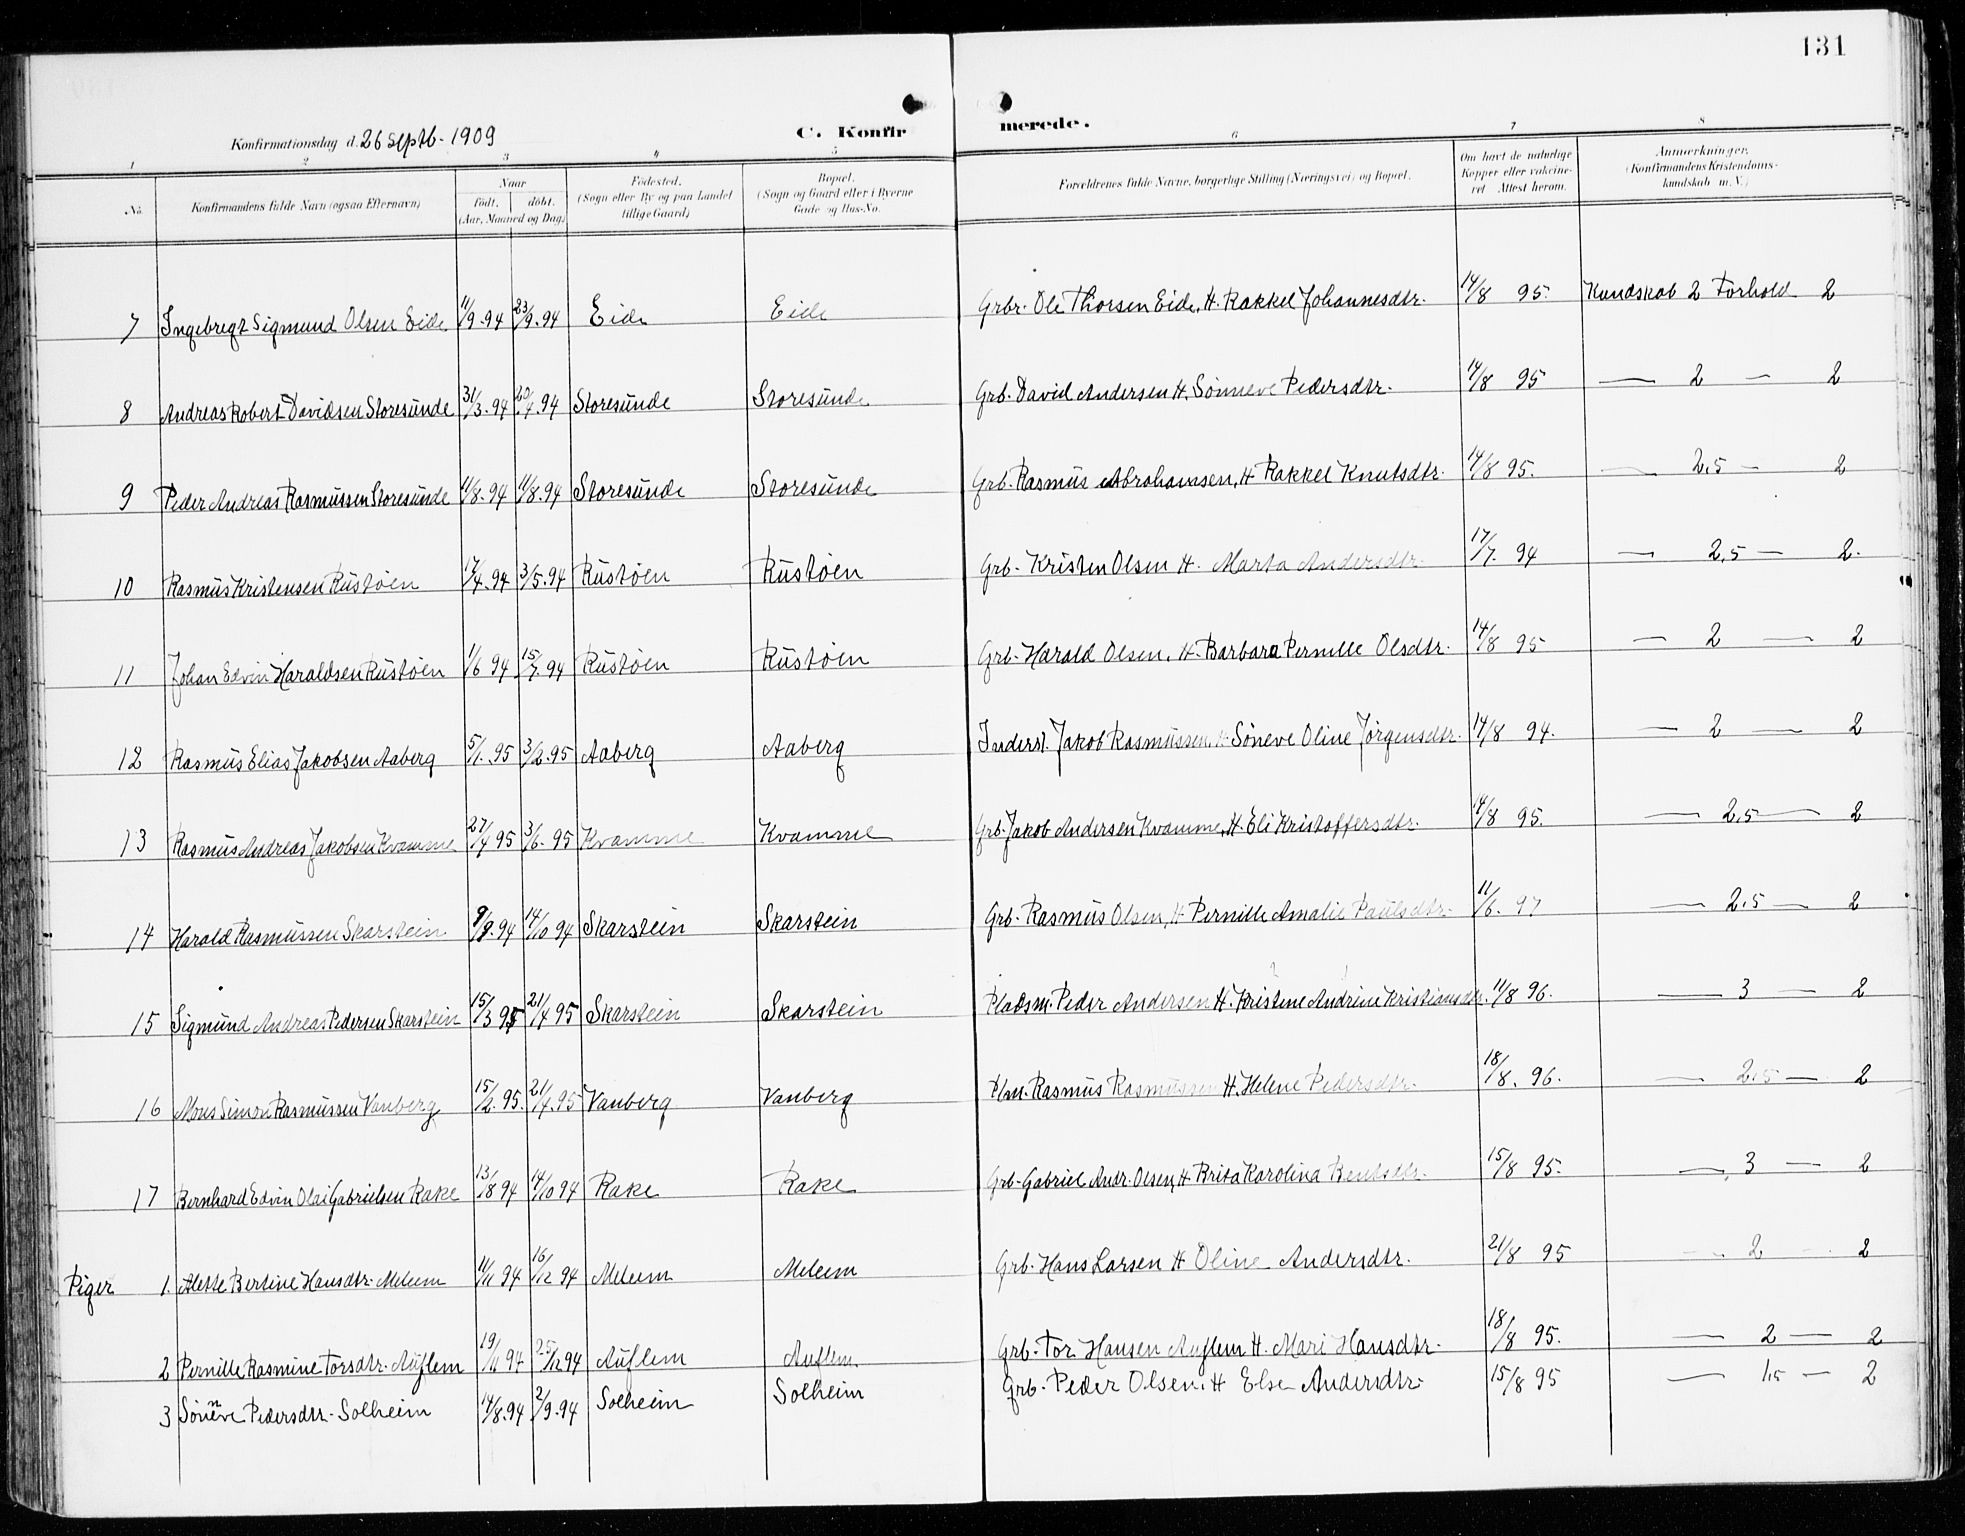 131
Konfirmationsdag d. 26 Septb. 1909
C. Konfirmerede.
1 2 3 4 5 6 7 8
No. Konfirmandens fulde Navn (ogsaa Efternavn) Naar født. døbt. (Aar, Maaned og Dag) Fødested. (Sogn eller By og paa Landet tillige Gaard) Bopæl. (Sogn og Gaard eller i Byerne Gade og Hus-No. Forældrenes fulde Navne, borgerlige Stilling (Næringsvei) og Bopæl. Om havt de naturlige Kopper eller vakcineret. Attest herom. Anmærkninger. (Konfirmandens Kristendomskundskab m. V.)
7 Ingebregt Sigmund Olsen Eide 11/9.94 23/9.94 Eide Eide Grbr. Ole Thorsen Eide, H. Rakkel Johannesdtr. 14/8 95. Kundskab 2 Forhold 2
8 Andreas Robert Davidsen Storesunde 31/3.94 20/4.94 Storesunde Storesunde Grb. David Andersen H. Sønneve Pedersdtr. 14/8 95 — 2 — 2
9 Peder Andreas Rasmussen Storesunde 11/8.94 11/8.94 Storesunde Storesunde Grb. Rasmus Abrahamsen, H Rakkel Knutsdtr. 14/8 95. — 2,5 — 2
10 Rasmus Kristensen Rustøen 17/4.94 3/5.94 Rustøen Rustøen Grb. Kristen Olsen H. Marta Andersdtr. 17/7. 94 — 2,5 — 2.
11 Johan Edvin Haraldsen Rustøen 1/6 94 15/7.94 Rustøen Rustøen Grb. Harald Olsen, H. Barbara Pernille Olsdtr. 14/8 95 — 2 — 2
12 Rasmus Elias Jakobsen Aaberg 5/1.95 3/2.95 Aaberg Aaberg Inderst. Jakob Rasmussen, H. Søneve Oline Jørgensdtr. 14/8 94. — 2 — 2
13 Rasmus Andreas Jakobsen Kvamme 27/4 95 3/6. 95 Kvamme Kvamme Grb. Jakob Andersen Kvamme, H. Eli Kristoffersdtr. 14/8 95. — 2,5 — 2
14 Harald Rasmussen Skarstein 9/9.94 14/10 94 Skarstein Skarstein Grb. Rasmus Olsen, H Pernille Amalie Paulsdtr. 11/6. 97 — 2.5 — 2
15 Sigmund Andreas Pedersen Skarstein 15/3 95 21/4 95 Skarstein Skarstein Pladsm. Peder Andersen H. Kristine Andrine Kristiansdtr. 11/8 96. — 3 — 2
16 Mons Simon Rasmussen Vanberg 15/2.95. 21/4.95 Vanberg Vanberg Plm. Rasmus Rasmussen H. Helene Pedersdtr. 18/8. 96. — 2.5 — 2
17 Bernhard Edvin Olai Gabrielsen Rake 13/8 94 14/10 94 Rake Rake Grb. Gabriel Andr. Olsen, H Brita Karolina Bentsdtr. 15/8 95. — 3 — 2
Piger 1. Alette Bertine Hansdtr. Meleem 11/11 94 16/12 94 Meleem Meleem Grb. Hans Larsen H Oline Andersdtr. 21/8 95 — 2 — 2
2 Pernille Rasmine Torsdtr. Auflem 19/11 94 25/12 94 Auflem Auflem Grb. Tor Hansen Auflem H. Mari Hansdtr. 18/8 95. — 2 — 2
3 Sønneve Pedersdtr. Solheim 14/8.94 2/9.94 Solheim Solheim Grb. Peder Olsen. H Else Andersdtr. 15/8 95 — 1,5 — 2